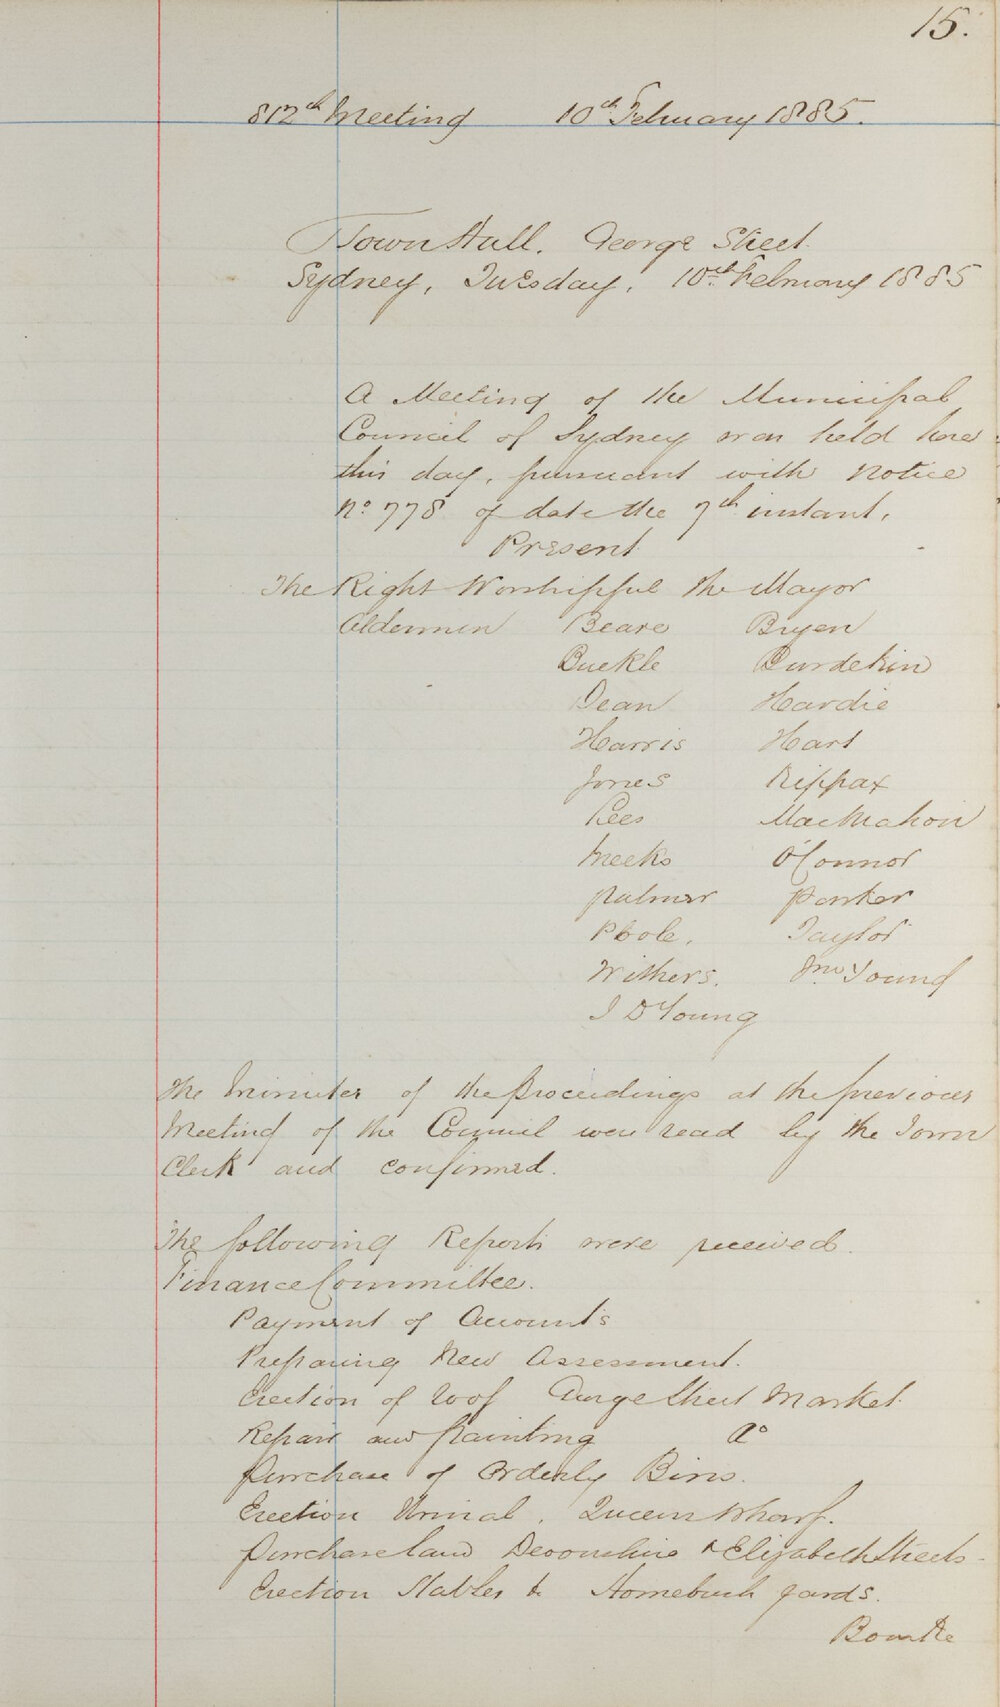 15.
812th Meeting 10th February 1885.
Town Hall. George Street.
Sydney, Tuesday, 10th February 1885
A Meeting of the Municipal
Council of Sydney was held here
this day, pursuant with Notice
No. 778 of date the 7th instant,
Present
The Right Worshipful the Mayor
Aldermen Beare Bryen
Buckle Burdekin
Dean Hardie
Harris Hart
Jones Kippax
Lees MacMahon
Meeks O'Connor
Palmer Parker
Poole. Taylor
Withers. Jno Young
J D Young
The Minutes of the Proceedings at the previous
Meeting of the Council were read by the Town
Clerk and confirmed.
The following Reports were received.
Finance Committee.
Payment of Accounts
Preparing New Assessment.
Erection of roof George Street Market.
Repairs and painting do
Purchase of Orderly Bins.
Erection Urinal, Queens Wharf.
Purchase land Devonshire & Elizabeth Streets.
Erection Stables &c Homebush yards.
Bourke